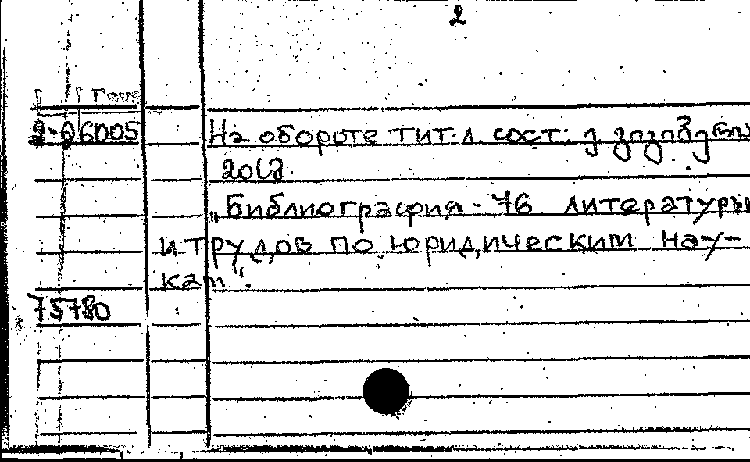 2
2-06005 На обороте тит. л. сост:
"Библиография - 76 литературы
и трудов по юридическим нау-
кам".
75780